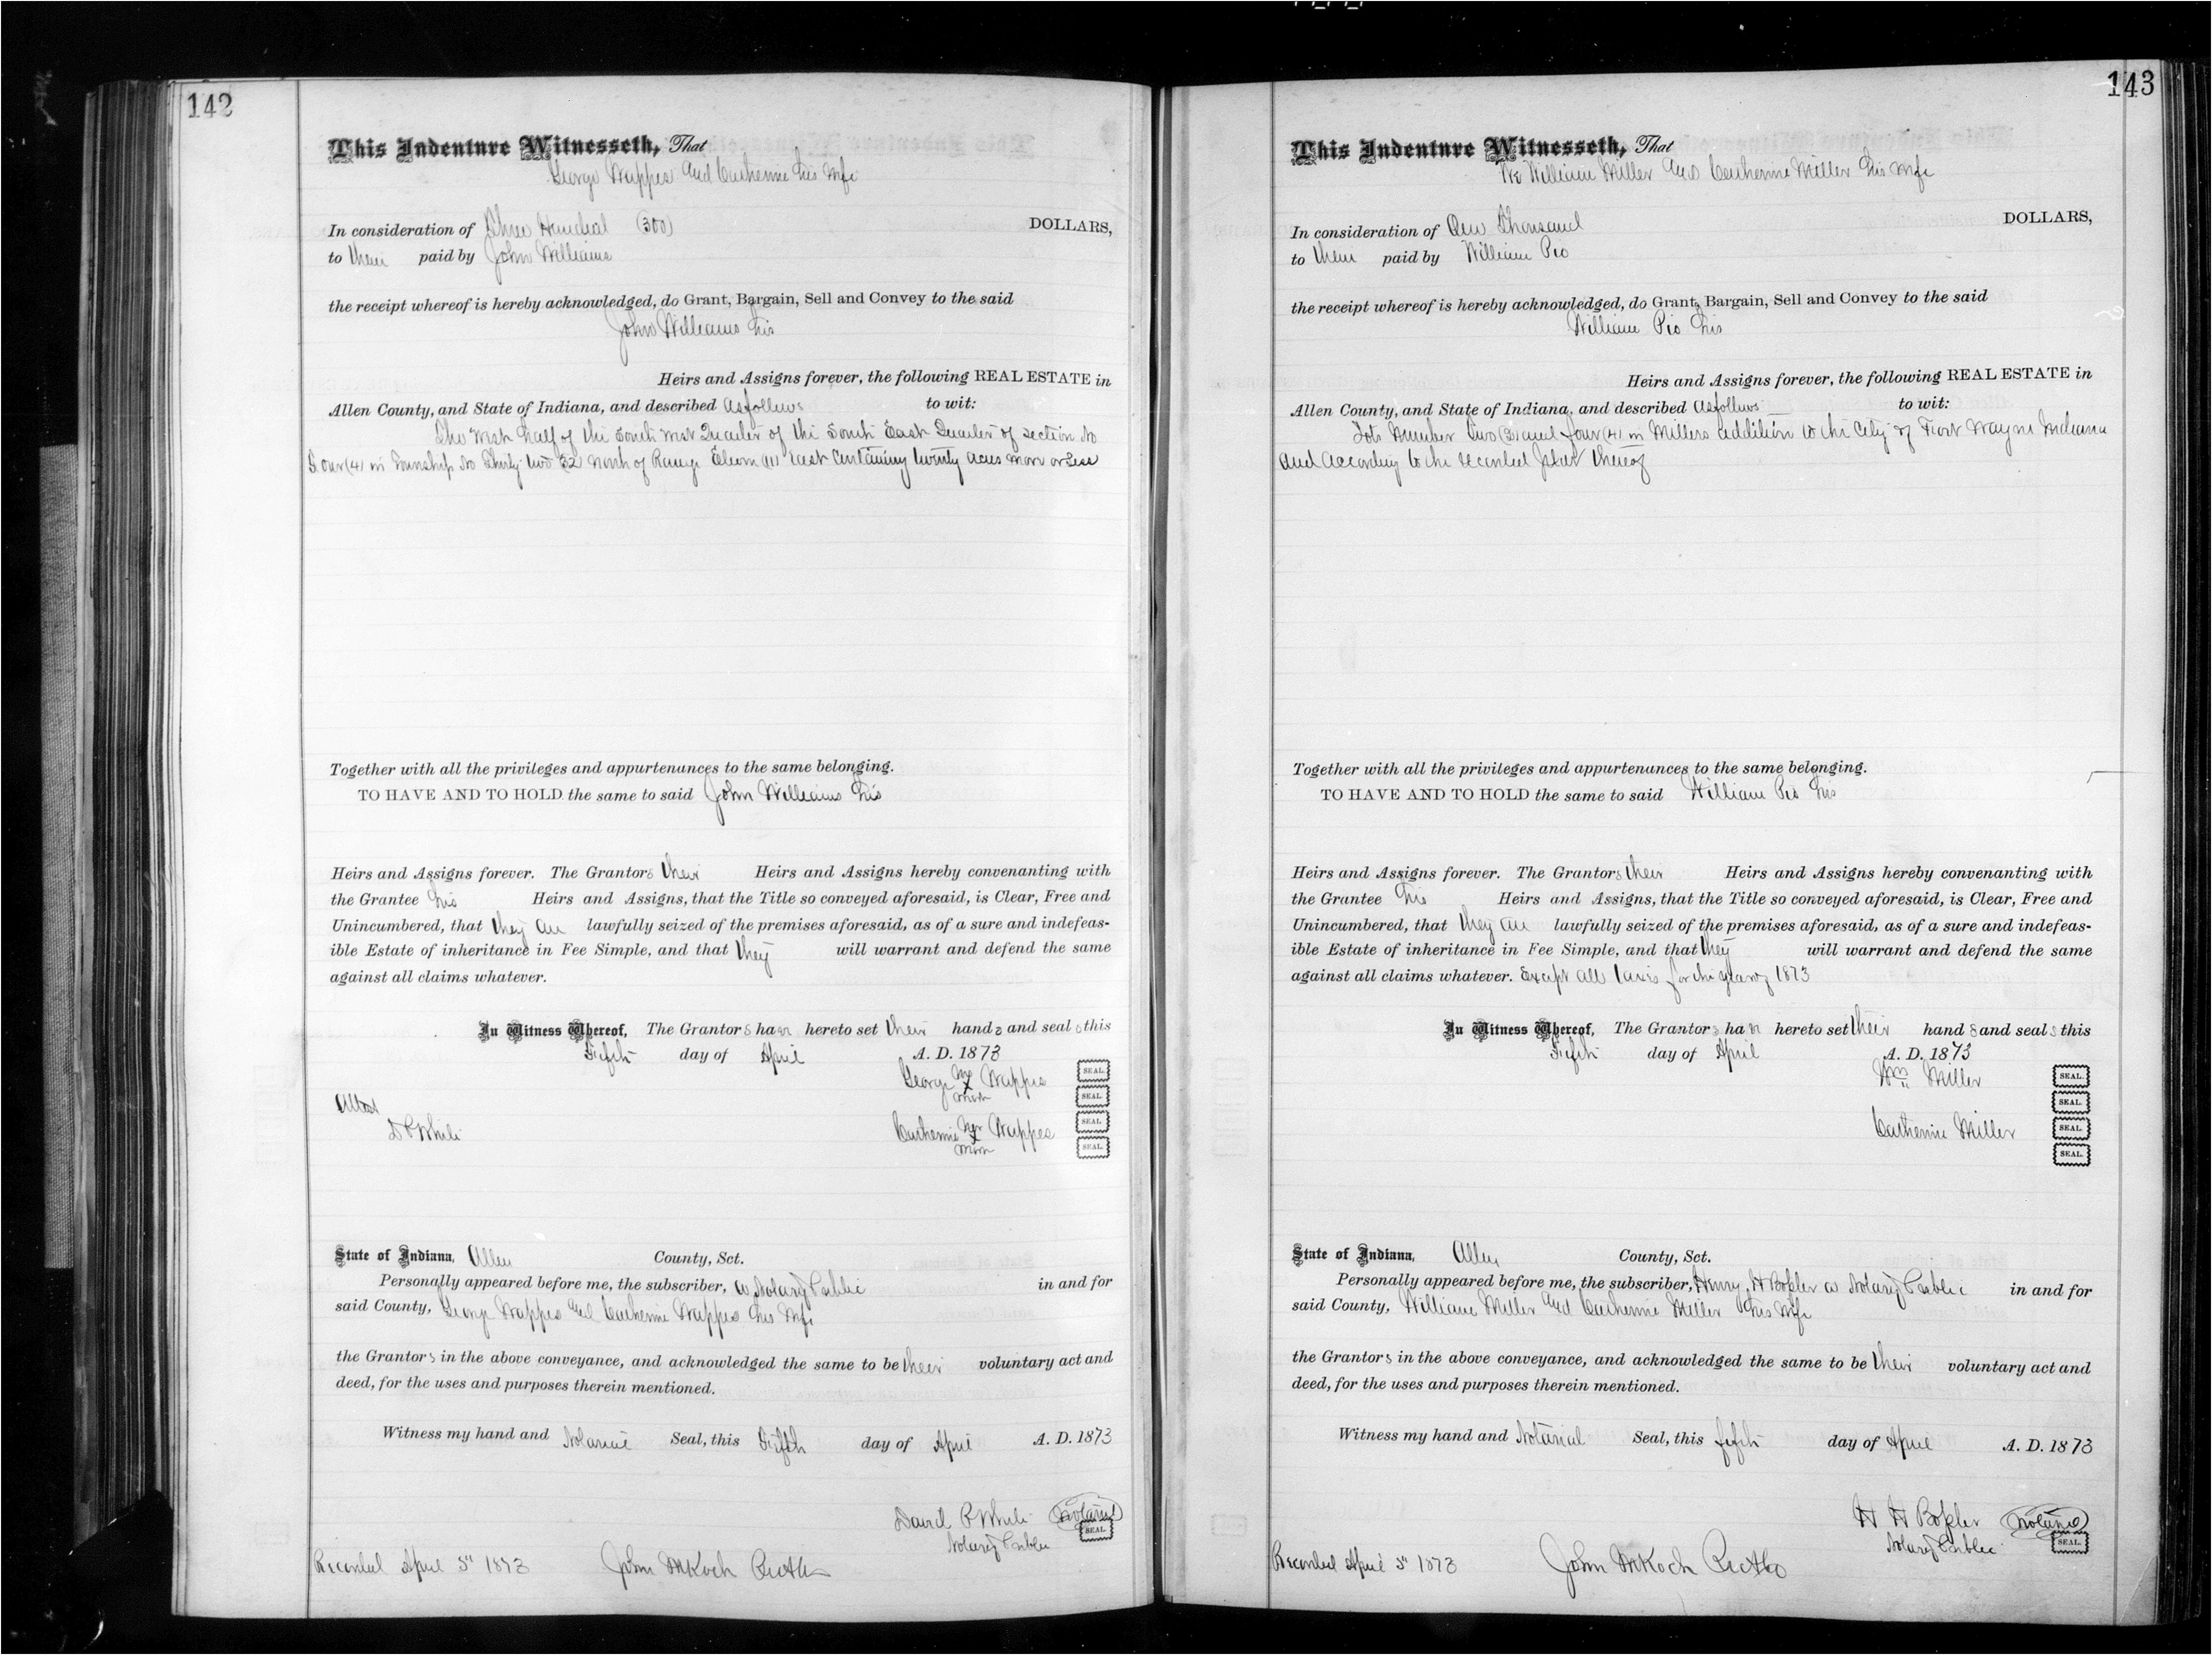 142
This Indenture Witnesseth, That
George Wappes and Catherine his wife
In consideration of Three Hundred (300) DOLLARS,
to them paid by John Williams
the receipt whereof is hereby acknowledged, do Grant, Bargain, Sell and Convey to the said
John Williams his
Heirs and Assigns forever, the following REAL ESTATE in
Allen County, and State of Indiana, and described as follows to wit:
The West half of the South West Quarter of the South East Quarter of section No
Four (4) in Township No Thirty two 32 North of Range Eleven (11) East Containing twenty acres more or Less
Together with all the privileges and appurtenances to the same belonging.
TO HAVE AND TO HOLD the same to said John Williams his
Heirs and Assigns forever. The Grantors their Heirs and Assigns hereby convenanting with
the Grantee his Heirs and Assigns, that the Title so conveyed aforesaid, is Clear, Free and
Unincumbered, that they are lawfully seized of the premises aforesaid, as of a sure and indefeas-
ible Estate of inheritance in Fee Simple, and that they will warrant and defend the same
against all claims whatever.
In Witness Whereof, The Grantors have hereto set their hands and seals this
Fifth day of April A. D. 1873
George his X mark Wappes SEAL.
SEAL.
Attest
D P White
Catherine her X mark Wappes SEAL.
SEAL.
State of Indiana, Allen County, Sct.
Personally appeared before me, the subscriber, a Notary Public in and for
said County, George Wappes and Catherine Wappes his wife
the Grantors in the above conveyance, and acknowledged the same to be their voluntary act and
deed, for the uses and purposes therein mentioned.
Witness my hand and Notarial Seal, this Fifth day of April A. D. 1873
David P White Notarial
Notary Public SEAL.
Recorded April 5" 1873 John M Koch
143
This Indenture Witnesseth, That
We William Miller and Catherine Miller his wife
In consideration of One Thousand DOLLARS,
to them paid by William Pio
the receipt whereof is hereby acknowledged, do Grant, Bargain, Sell and Convey to the said
William Pio his
Heirs and Assigns forever, the following REAL ESTATE in
Allen County, and State of Indiana, and described as follows to wit:
Lots Number Two (3) and four (4) in Millers addition to the City of Fort Wayne Indiana
and according to the recorded plat thereof
Together with all the privileges and appurtenances to the same belonging.
TO HAVE AND TO HOLD the same to said William Pio his
Heirs and Assigns forever. The Grantors their Heirs and Assigns hereby convenanting with
the Grantee his Heirs and Assigns, that the Title so conveyed aforesaid, is Clear, Free and
Unincumbered, that they are lawfully seized of the premises aforesaid, as of a sure and indefeas-
ible Estate of inheritance in Fee Simple, and that they will warrant and defend the same
against all claims whatever. Except all taxes for the year of 1873
In Witness Whereof, The Grantors have hereto set their hands and seals this
Fifth day of April A. D. 1873
Wm Miller SEAL.
SEAL.
Catherine Miller SEAL.
SEAL.
State of Indiana, Allen County, Sct.
Personally appeared before me, the subscriber, Henry H a Notary Public in and for
said County, William Miller and Catherine Miller his wife
the Grantors in the above conveyance, and acknowledged the same to be their voluntary act and
deed, for the uses and purposes therein mentioned.
Witness my hand and Notarial Seal, this fifth day of April A. D. 1873
H H Notarial
Notary Public SEAL.
Recorded April 5" 1873 John M Koch